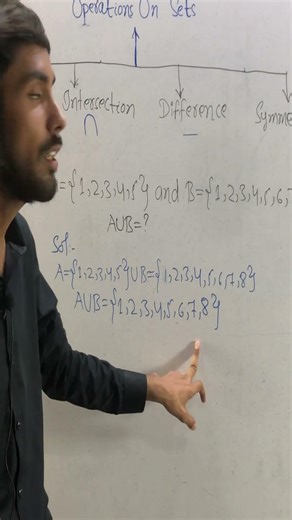 Operations On Sets
Intersection Difference Symme
∩ —
= {1,2,3,4,5} and B = {1,2,3,4,5,6,7
AUB = ?
Sol:-
A={1,2,3,4,5} UB = {1,2,3,4,5,6,7,8}
AUB = {1,2,3,4,5,6,7,8}